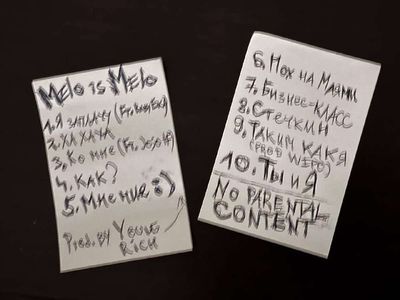 Melo is Melo
1. Я заплачу (Ft.
2. Ха ха ча
3. Ко мне (Ft.
4. Как?
5. Мне ние :)
Prod. by Young
Rich
6. Нох на Маями
7. Бизнес-класс
8. Стечкин
9. Таким как я
(prod Weipo)
10. Ты и Я
No Parental
Content